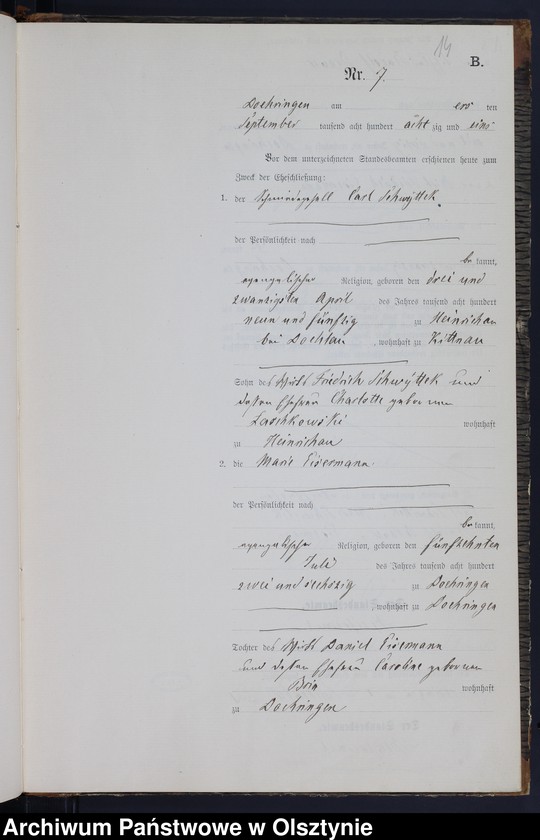 14
B.
Nr. 7.
Doehringen am ers ten
September tausend acht hundert acht zig und eins
Vor dem unterzeichneten Standesbeamten erschienen heute zum
Zweck der Eheschließung:
1. der Schmiedegesell Carl Schwyttek.
der Persönlichkeit nach
be kannt,
evangelischer Religion, geboren den drei und
zwanzigsten April des Jahres tausend acht hundert
neun und fünfzig zu Heinrichau
bei , wohnhaft zu Kittnau
Sohn des Wirts Friedrich Schwyttek und
dessen Ehefrau Charlotte geborenen
wohnhaft
zu Heinrichau
2. die Marie Eisermann
der Persönlichkeit nach
be kannt,
evangelischer Religion, geboren den fünfzehnten
Juli des Jahres tausend acht hundert
zwei und sechszig zu Doehringen
wohnhaft zu Doehringen
Tochter des Wirts Daniel Eisermann
und dessen Ehefrau Caroline geborenen
wohnhaft
zu Doehringen
Archiwum Państwowe w Olsztynie